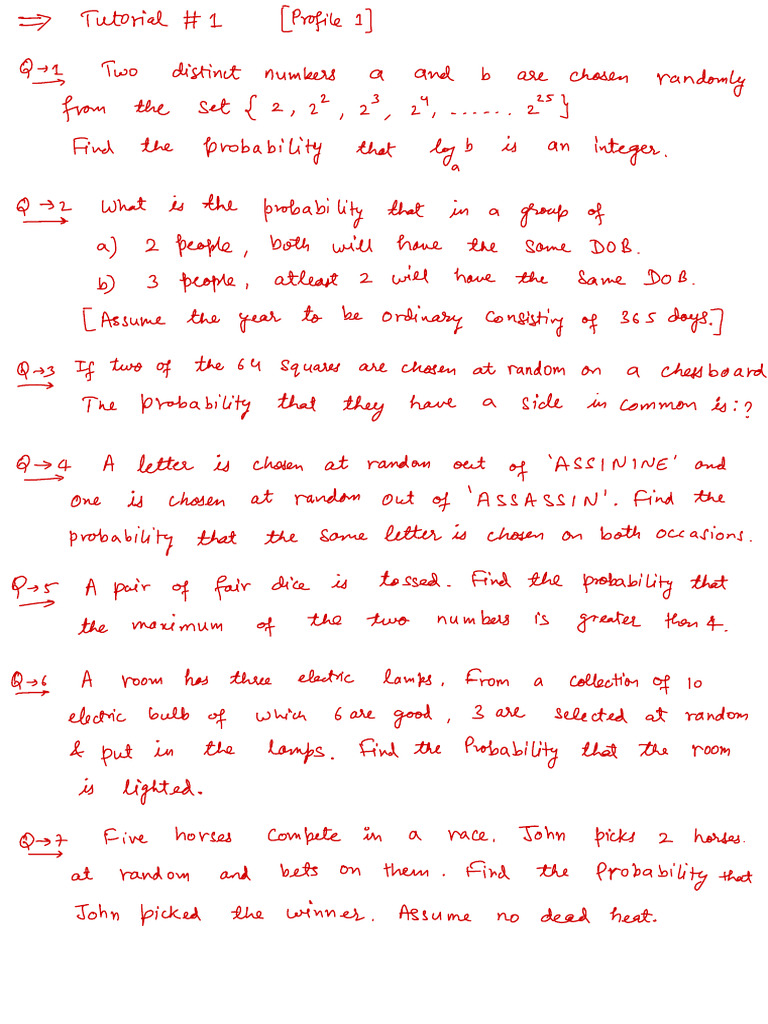 ⇒ Tutorial # 1 [Profile 1]
Q→1 Two distinct numbers a and b are chosen randomly
from the set { 2, 2², 2³, 2⁴, ...... 2²⁵}
Find the probability that logₐ b is an integer.
Q→2 What is the probability that in a group of
a) 2 people, both will have the same DOB.
b) 3 people, atleast 2 will have the same DOB.
[Assume the year to be ordinary consisting of 365 days.]
Q→3 If two of the 64 squares are chosen at random on a chessboard
The probability that they have a side in common is:?
Q→4 A letter is chosen at random out of 'ASSININE' and
one is chosen at random out of 'ASSASSIN'. Find the
probability that the same letter is chosen on both occasions.
Q→5 A pair of fair dice is tossed. Find the probability that
the maximum of the two numbers is greater than 4.
Q→6 A room has three electric lamps. From a collection of 10
electric bulb of which 6 are good, 3 are selected at random
& put in the lamps. Find the Probability that the room
is lighted.
Q→7 Five horses compete in a race. John picks 2 horses.
at random and bets on them. Find the Probability that
John picked the winner. Assume no dead heat.